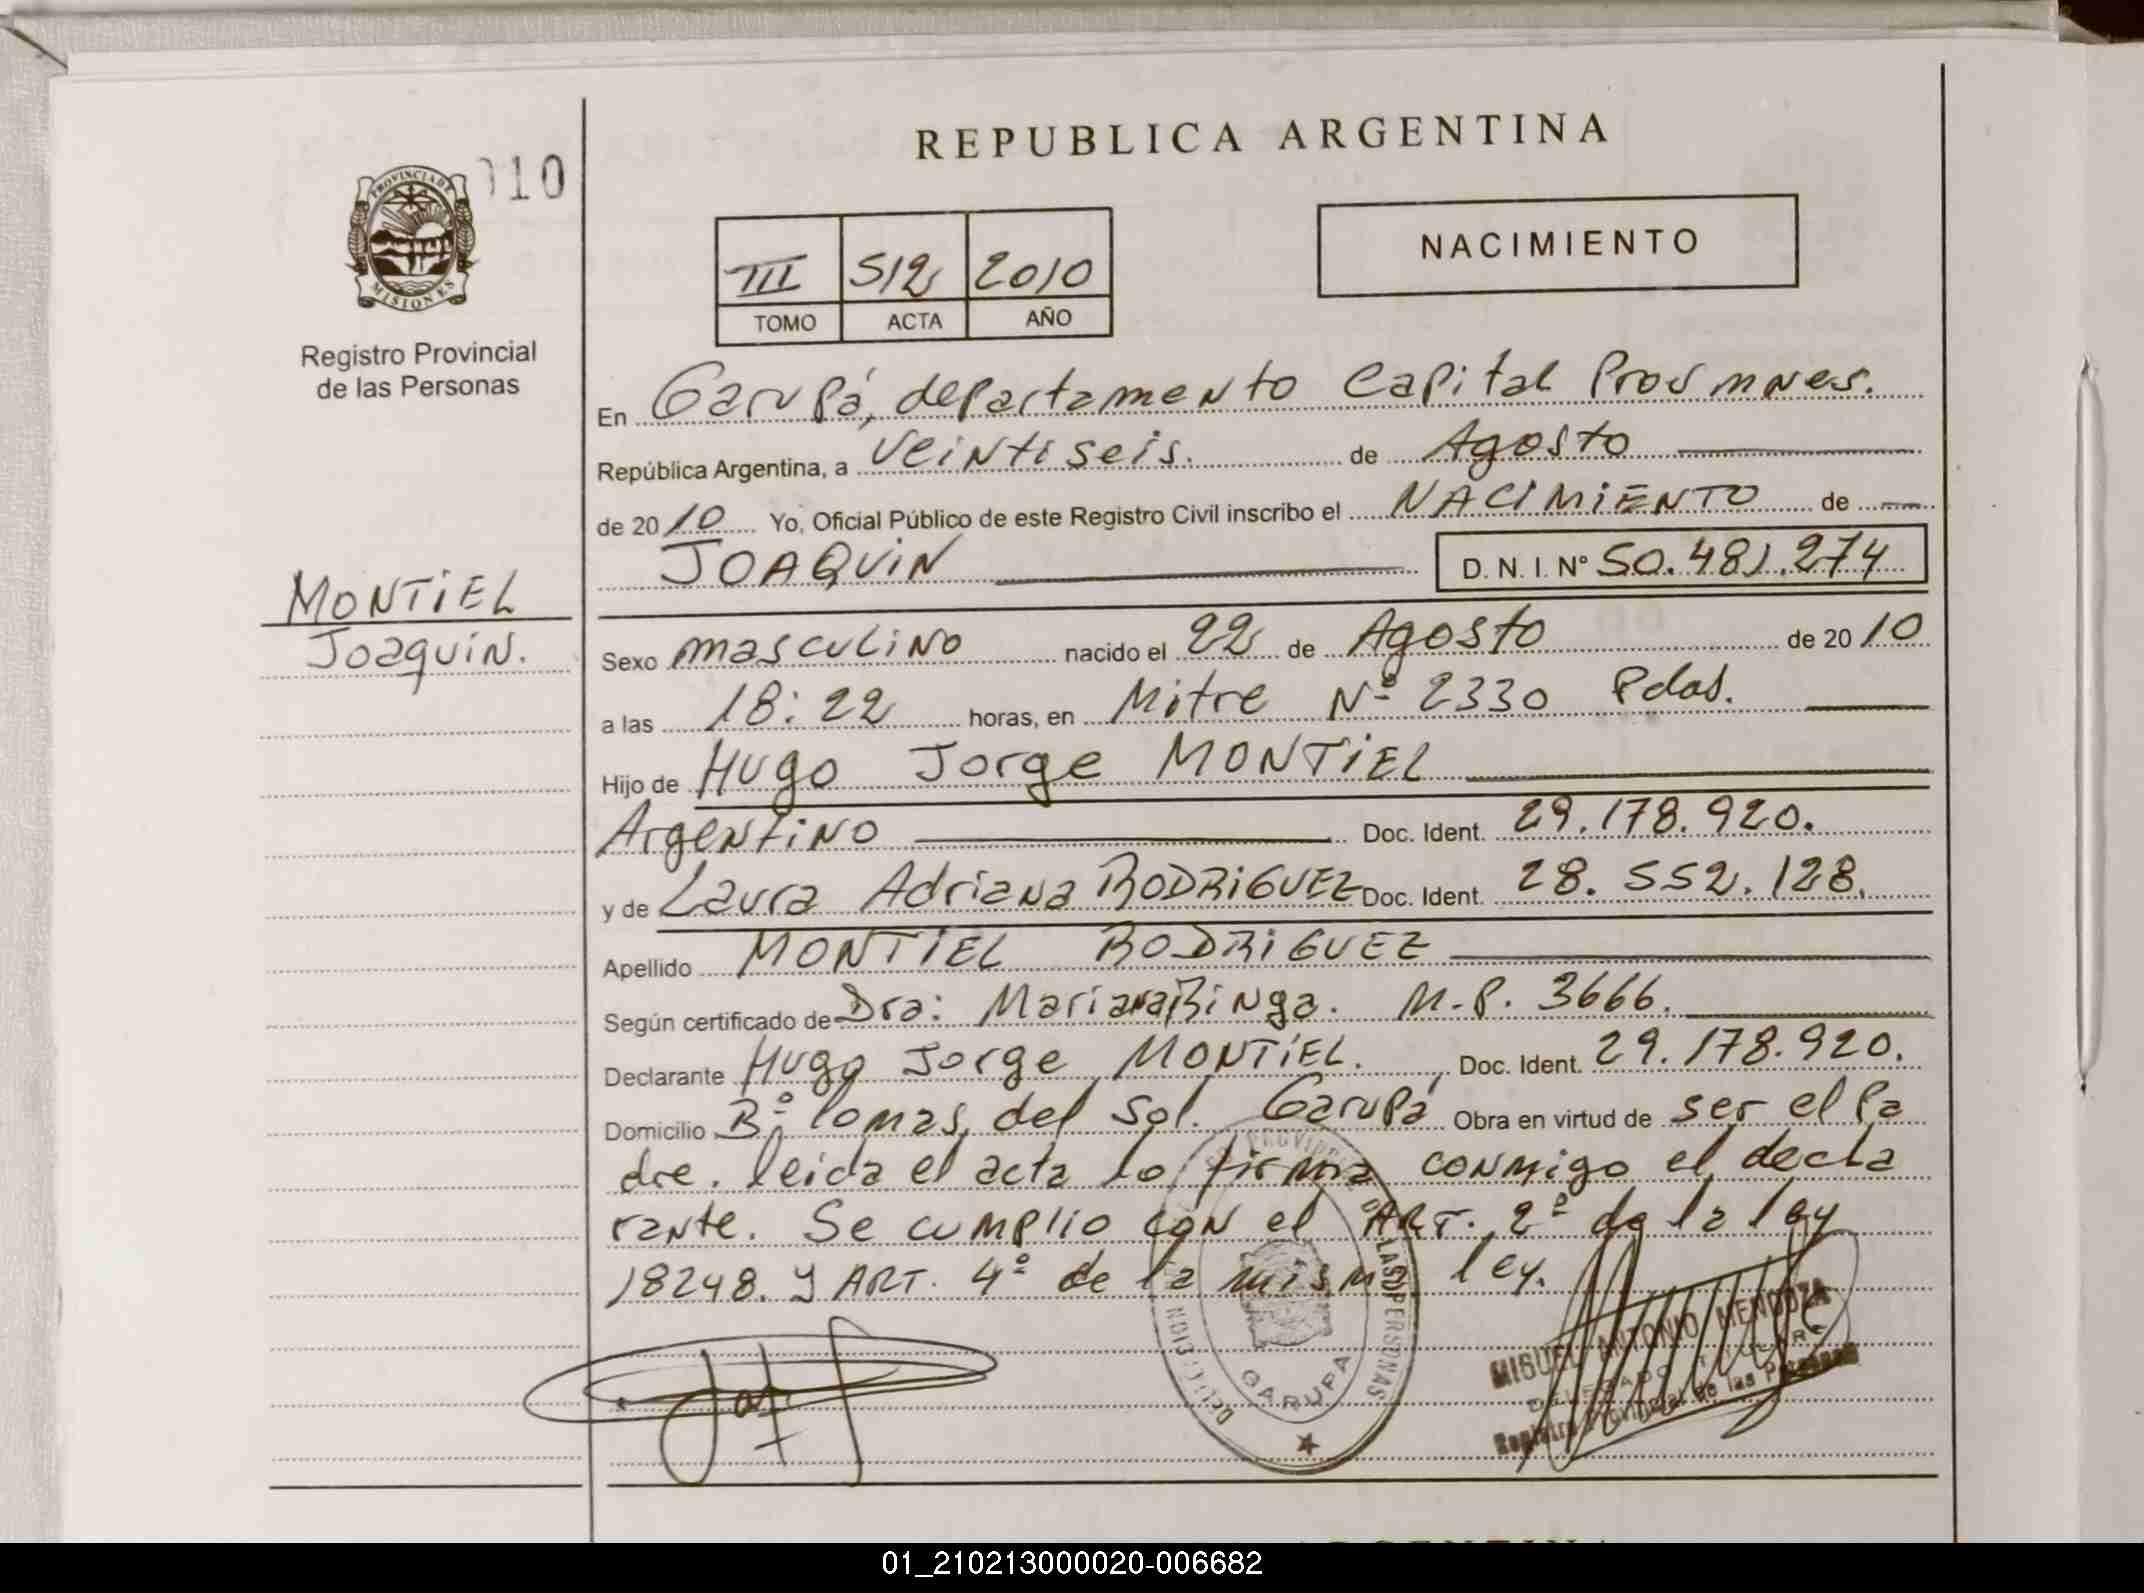 REPUBLICA ARGENTINA
010
PROVINCIA DE
MISIONES
Registro Provincial
de las Personas
NACIMIENTO
III 512 2010
TOMO ACTA AÑO
En Garupá, departamento Capital Prov mnes.
República Argentina, a veintiseis. de Agosto
de 2010 Yo, Oficial Público de este Registro Civil inscribo el NACIMIENTO de
JOAQUIN D. N. I. Nº 50.481.274
MONTIEL
Joaquin.
Sexo masculino nacido el 22 de Agosto de 2010
a las 18:22 horas, en Mitre Nº 2330 Pdas.
Hijo de Hugo Jorge MONTIEL
Argentino Doc. Ident. 29.178.920.
y de Laura Adriana RODRIGUEZ Doc. Ident. 28.552.128.
Apellido MONTIEL RODRIGUEZ
Según certificado de Dra: Mariana Ringa. M.P. 3666.
Declarante Hugo Jorge MONTIEL. Doc. Ident. 29.178.920.
Domicilio Bº lomas del Sol. Garupá Obra en virtud de ser el Pa
dre. leida el acta lo firma conmigo el decla
rante. Se cumplio con el ART. 2º de la ley
18248. y ART. 4º de la misma ley.
LAS PERSONAS
GARUPA
MIGUEL ANTONIO MENDOZA
DELEGADO TITULAR
Registro Provincial de las Personas
01_210213000020-006682